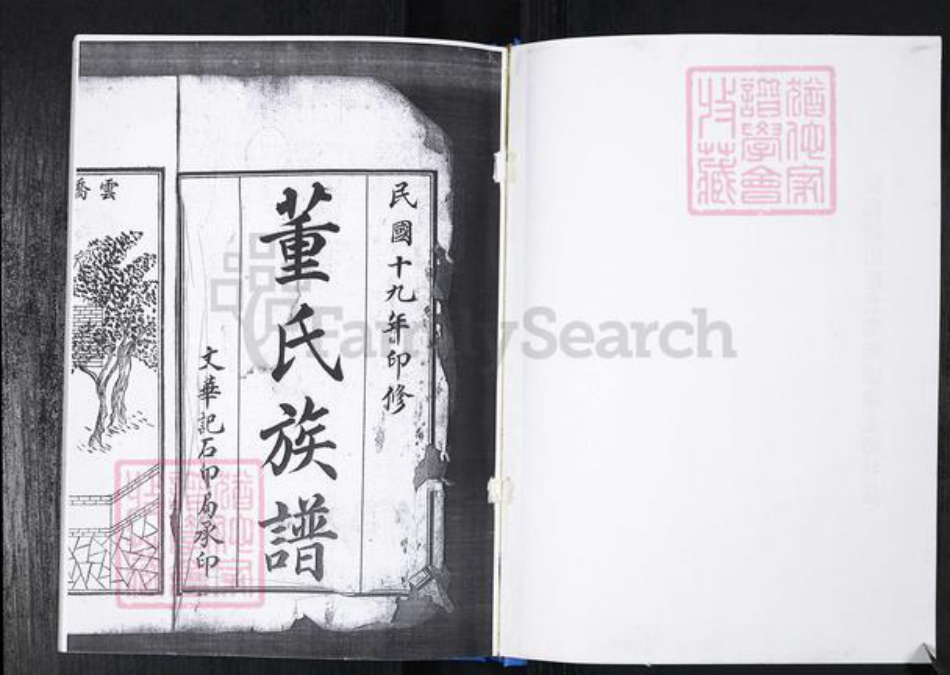 猶他家
譜學會
收藏
民國十九年印修
董氏族譜
文華記石印局承印
雲
喬
FamilySearch
猶他家
譜學會
收藏